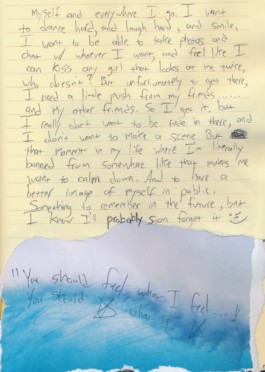 Myself and everywhere I go. I want
to dance hard, and laugh hard, and smile.
I want to be able to take photos and
chat w/ whoever I want, and feel like I
can kiss any girl that looks at me twice,
who doesn't? But unfortunately to get there,
I need a little push from my friends.......
and my other friends. So I get it, but
I really don't want to be rude in there, and
I don't want to make a scene. But
that moment in my life where I'm literally
banned from somewhere like that makes me
want to calm down. And to have a
better image of myself in public.
Something to remember in the future, but
I know I'll probably soon forget it :)
"You should feel what I feel...
You should what I